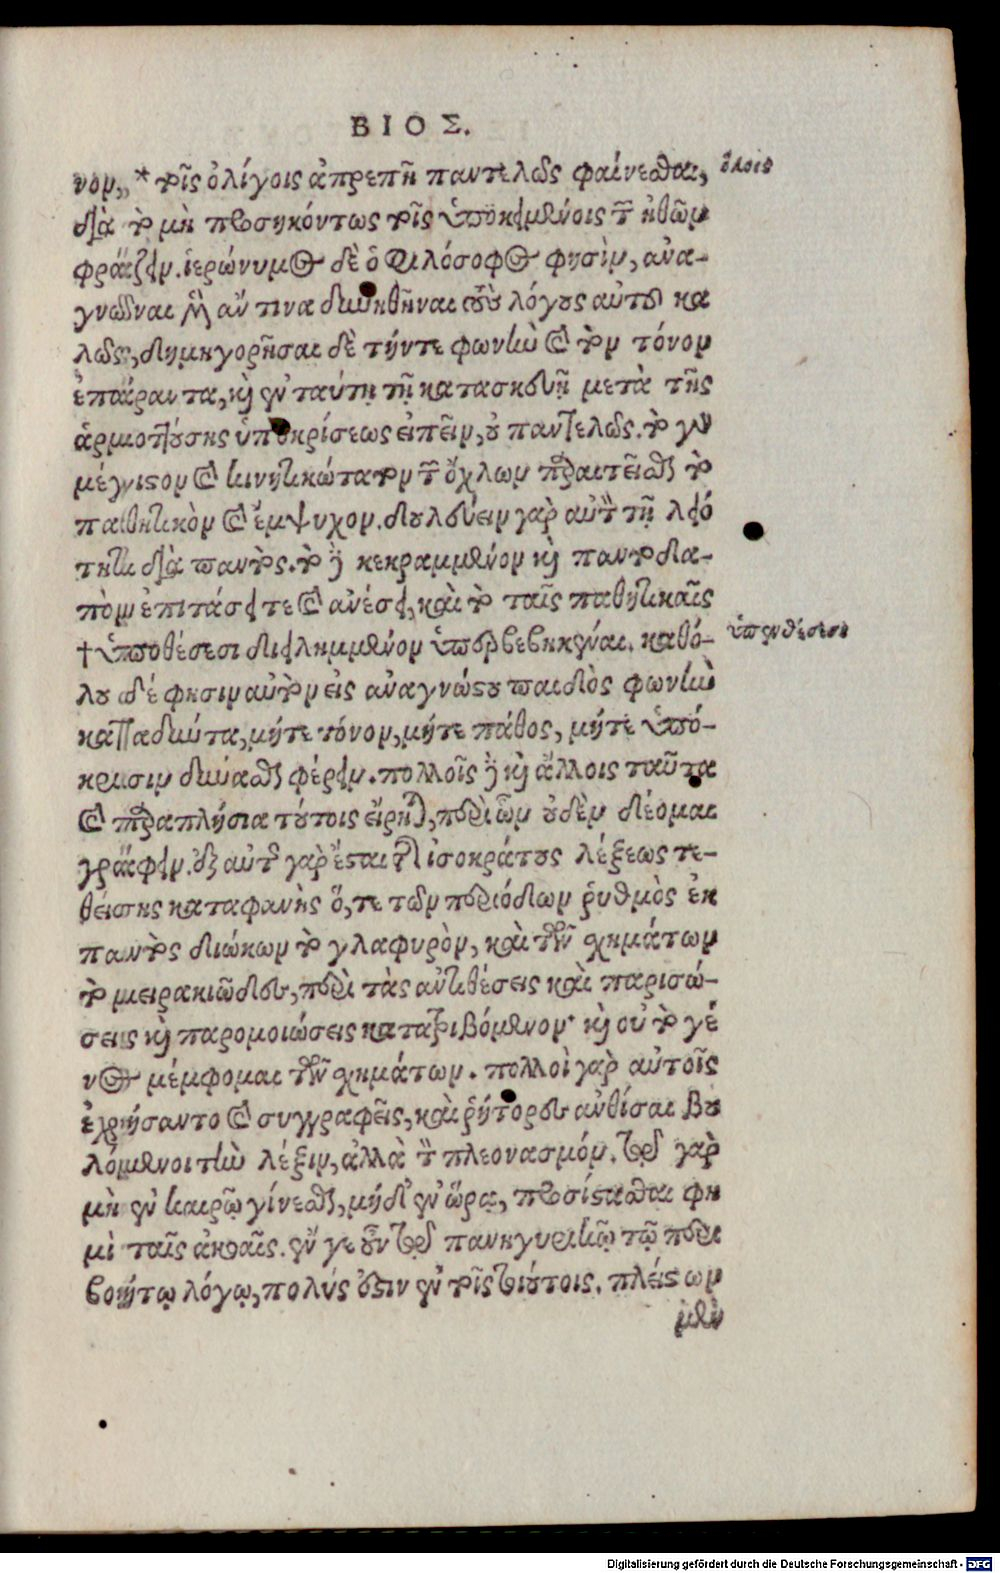 ΒΙΟΣ.
νον,, * τοῖς ὀλίγοις ἀπρεπῆ παντελῶς φαίνεσθαι,
διὰ τὸ μὴ προσηκόντως τοῖς ὑποκειμένοις τῶν ἠθῶν
φράζειν. ἱερώνυμος δὲ ὁ Φιλόσοφος φησὶν, ἀνα-
γνῶναι μὲν ἄν τινα δυνηθῆναι τοὺς λόγους αὐτοῦ κα
λῶς, δημηγορῆσαι δὲ τήντε φωνὴν καὶ τὸν τόνον
ἐπάραντα, καὶ ἐν ταύτῃ τῇ κατασκευῇ μετὰ τῆς
ἁρμοττούσης ὑποκρίσεως εἰπεῖν, οὐ παντελῶς. τὸ γὰρ
μέγιστον καὶ κινητικώτατον τῶν ὄχλων παραιτεῖσθαι τὸ
παθητικὸν καὶ ἔμψυχον. δουλεύειν γὰρ αὐτὸν τῇ λειό
τητι διὰ παντός. τὸ δὲ κεκραμμένον καὶ παντοδα-
πὸν ἐπιτάσει τε καὶ ἀνέσει, καὶ τὸ ταῖς παθητικαῖς
† ὑποθέσεσι διειλημμένον ὑπερβεβηκέναι. καθό-
λου δέ φησιν αὐτὸν εἰς ἀναγνώστου παιδὸς φωνὴν
καταδύντα, μήτε τόνον, μήτε πάθος, μήτε ὑπό-
κρισιν δύνασθαι φέρειν. πολλοῖς δὲ καὶ ἄλλοις ταῦτα
καὶ παραπλήσια τούτοις εἴρηται, περὶ ὧν οὐδὲν δέομαι
γράφειν. ἐξ αὐτῆς γὰρ ἔσται τῆς ἰσοκράτους λέξεως τε-
θείσης καταφανὴς ὅ, τε τῶν περιόδων ῥυθμὸς ἐκ
παντὸς διώκων τὸ γλαφυρὸν, καὶ τῶν σχημάτων
τὸ μειρακιῶδες, περὶ τὰς ἀντιθέσεις καὶ παρισώ-
σεις καὶ παρομοιώσεις κατατριβόμενον· καὶ οὐ τὸ γέ
νος μέμφομαι τῶν σχημάτων. πολλοὶ γὰρ αὐτοῖς
ἐχρήσαντο καὶ συγγραφεῖς, καὶ ῥήτορες ἀνθίσαι βου
λόμενοι τὴν λέξιν, ἀλλὰ τὸν πλεονασμόν. τῷ γὰρ
μὴ ἐν καιρῷ γίνεσθαι, μηδ' ἐν ὥρᾳ, προσίστασθαι φη
μὶ ταῖς ἀκοαῖς. ἐν γε οὖν τῷ πανηγυρικῷ τῷ περι
βοήτῳ λόγῳ, πολύς ἐστιν ἐν τοῖς τοιούτοις. πλείστων
μὲν
ὅλοις
ὑπενθέσεσι
Digitalisierung gefördert durch die Deutsche Forschungsgemeinschaft - DFG